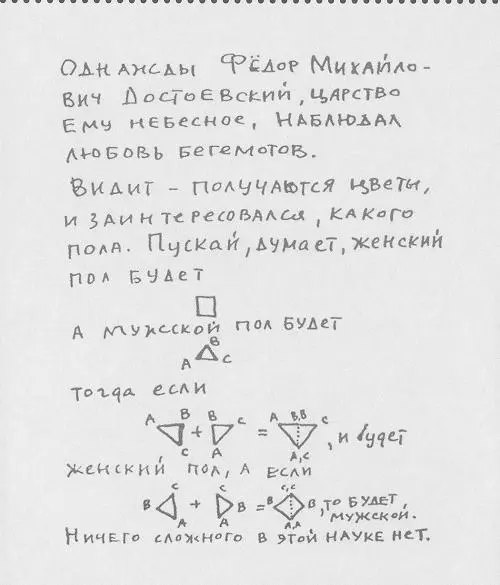 Однансды Фёдор Михайло-
вич Достоевский, царство
ему небесное, наблюдал
любовь бегемотов.
Видит - получаются цветы,
и заинтересовался, какого
пола. Пускай, думает, женский
пол будет
а мужсской пол будет
B
A C
тогда если
A B B C A B,B C
+ = , и будет
C A A,C
женский пол, а если
C C C,C
B + B = B B , то будет
A A A,A мужской.
Ничего сложного в этой науке нет.